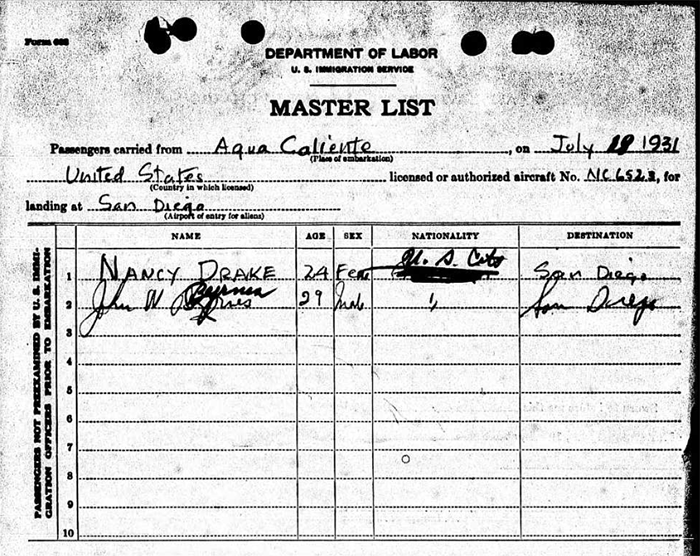 Form 608
DEPARTMENT OF LABOR
U. S. IMMIGRATION SERVICE
MASTER LIST
Passengers carried from Aqua Caliente, on July 1931
(Place of embarkation)
United States licensed or authorized aircraft No. NC652B, for
(Country in which licensed)
landing at San Diego
(Airport of entry for aliens)
PASSENGERS NOT PREEXAMINED BY U. S. IMMI-
GRATION OFFICERS PRIOR TO EMBARKATION
NAME AGE SEX NATIONALITY DESTINATION
1 NANCY DRAKE 24 Fem U. S. Citz San Diego
2 John W Byrnes 29 Male " San Diego
3
4
5
6
7
8
9
10